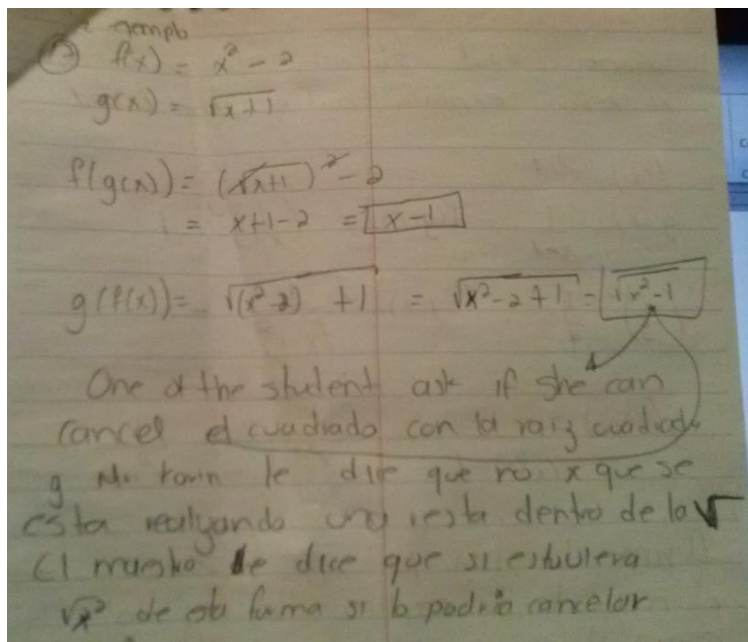 ejemplo
② f(x) = x² - 2
g(x) = √x+1
f(g(x)) = (√x+1)² - 2
= x+1-2 = x-1
g(f(x)) = √(x²-2) +1 = √x²-2+1 = √x²-1
One of the student ask if she can
cancel el cuadrado con la raiz cuadrada
y Mr. le dice que no x que se
esta realizando una resta dentro de la √
El maestro le dice que si estuviera
√x² de esta forma si lo podria cancelar